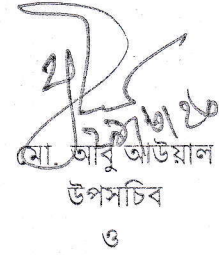 মো. আবু আউয়াল
উপসচিব
ও